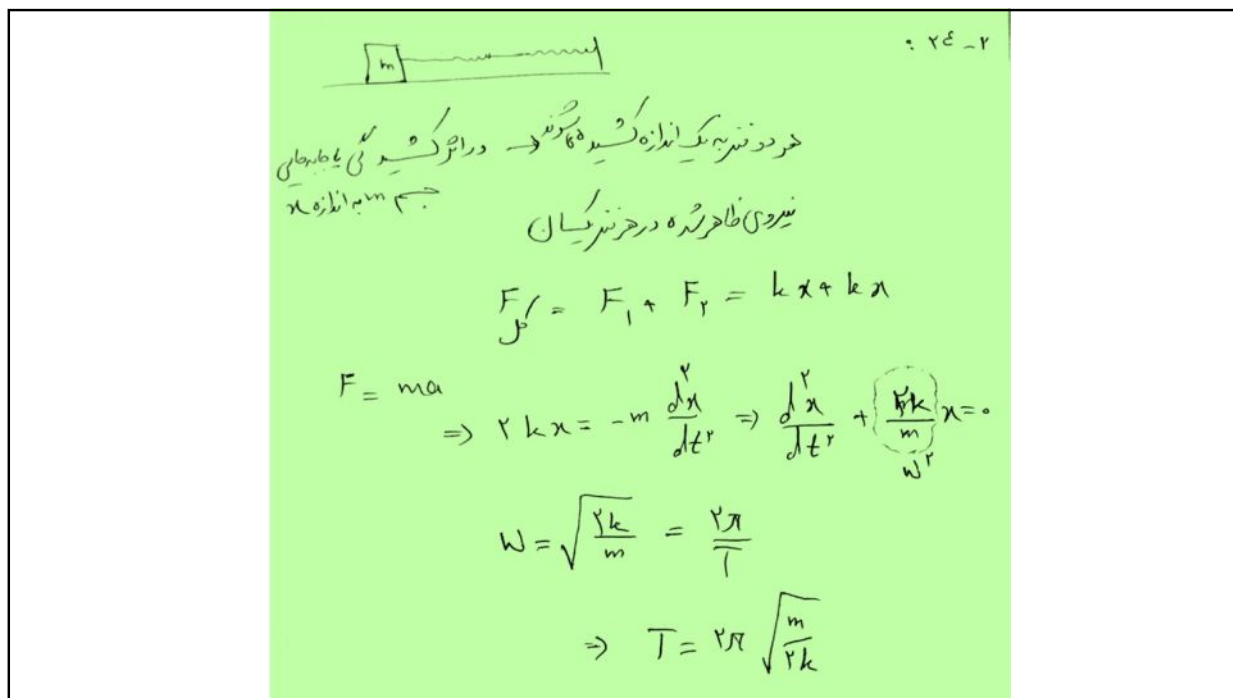 ۲-۲۴ :
m
هر دو فنر به یک اندازه کشیده می‌شوند → در اثر کشیدگی یا جابه‌جایی
جسم m به اندازه x
نیروی ظاهر شده در هر فنر یکسان
F کل = F۱ + F۲ = kx + kx
F = ma
⇒ ۲kx = -m d²x/dt² ⇒ d²x/dt² + ۲k/m x = ۰
ω²
ω = √(۲k/m) = ۲π/T
⇒ T = ۲π √(m/۲k)